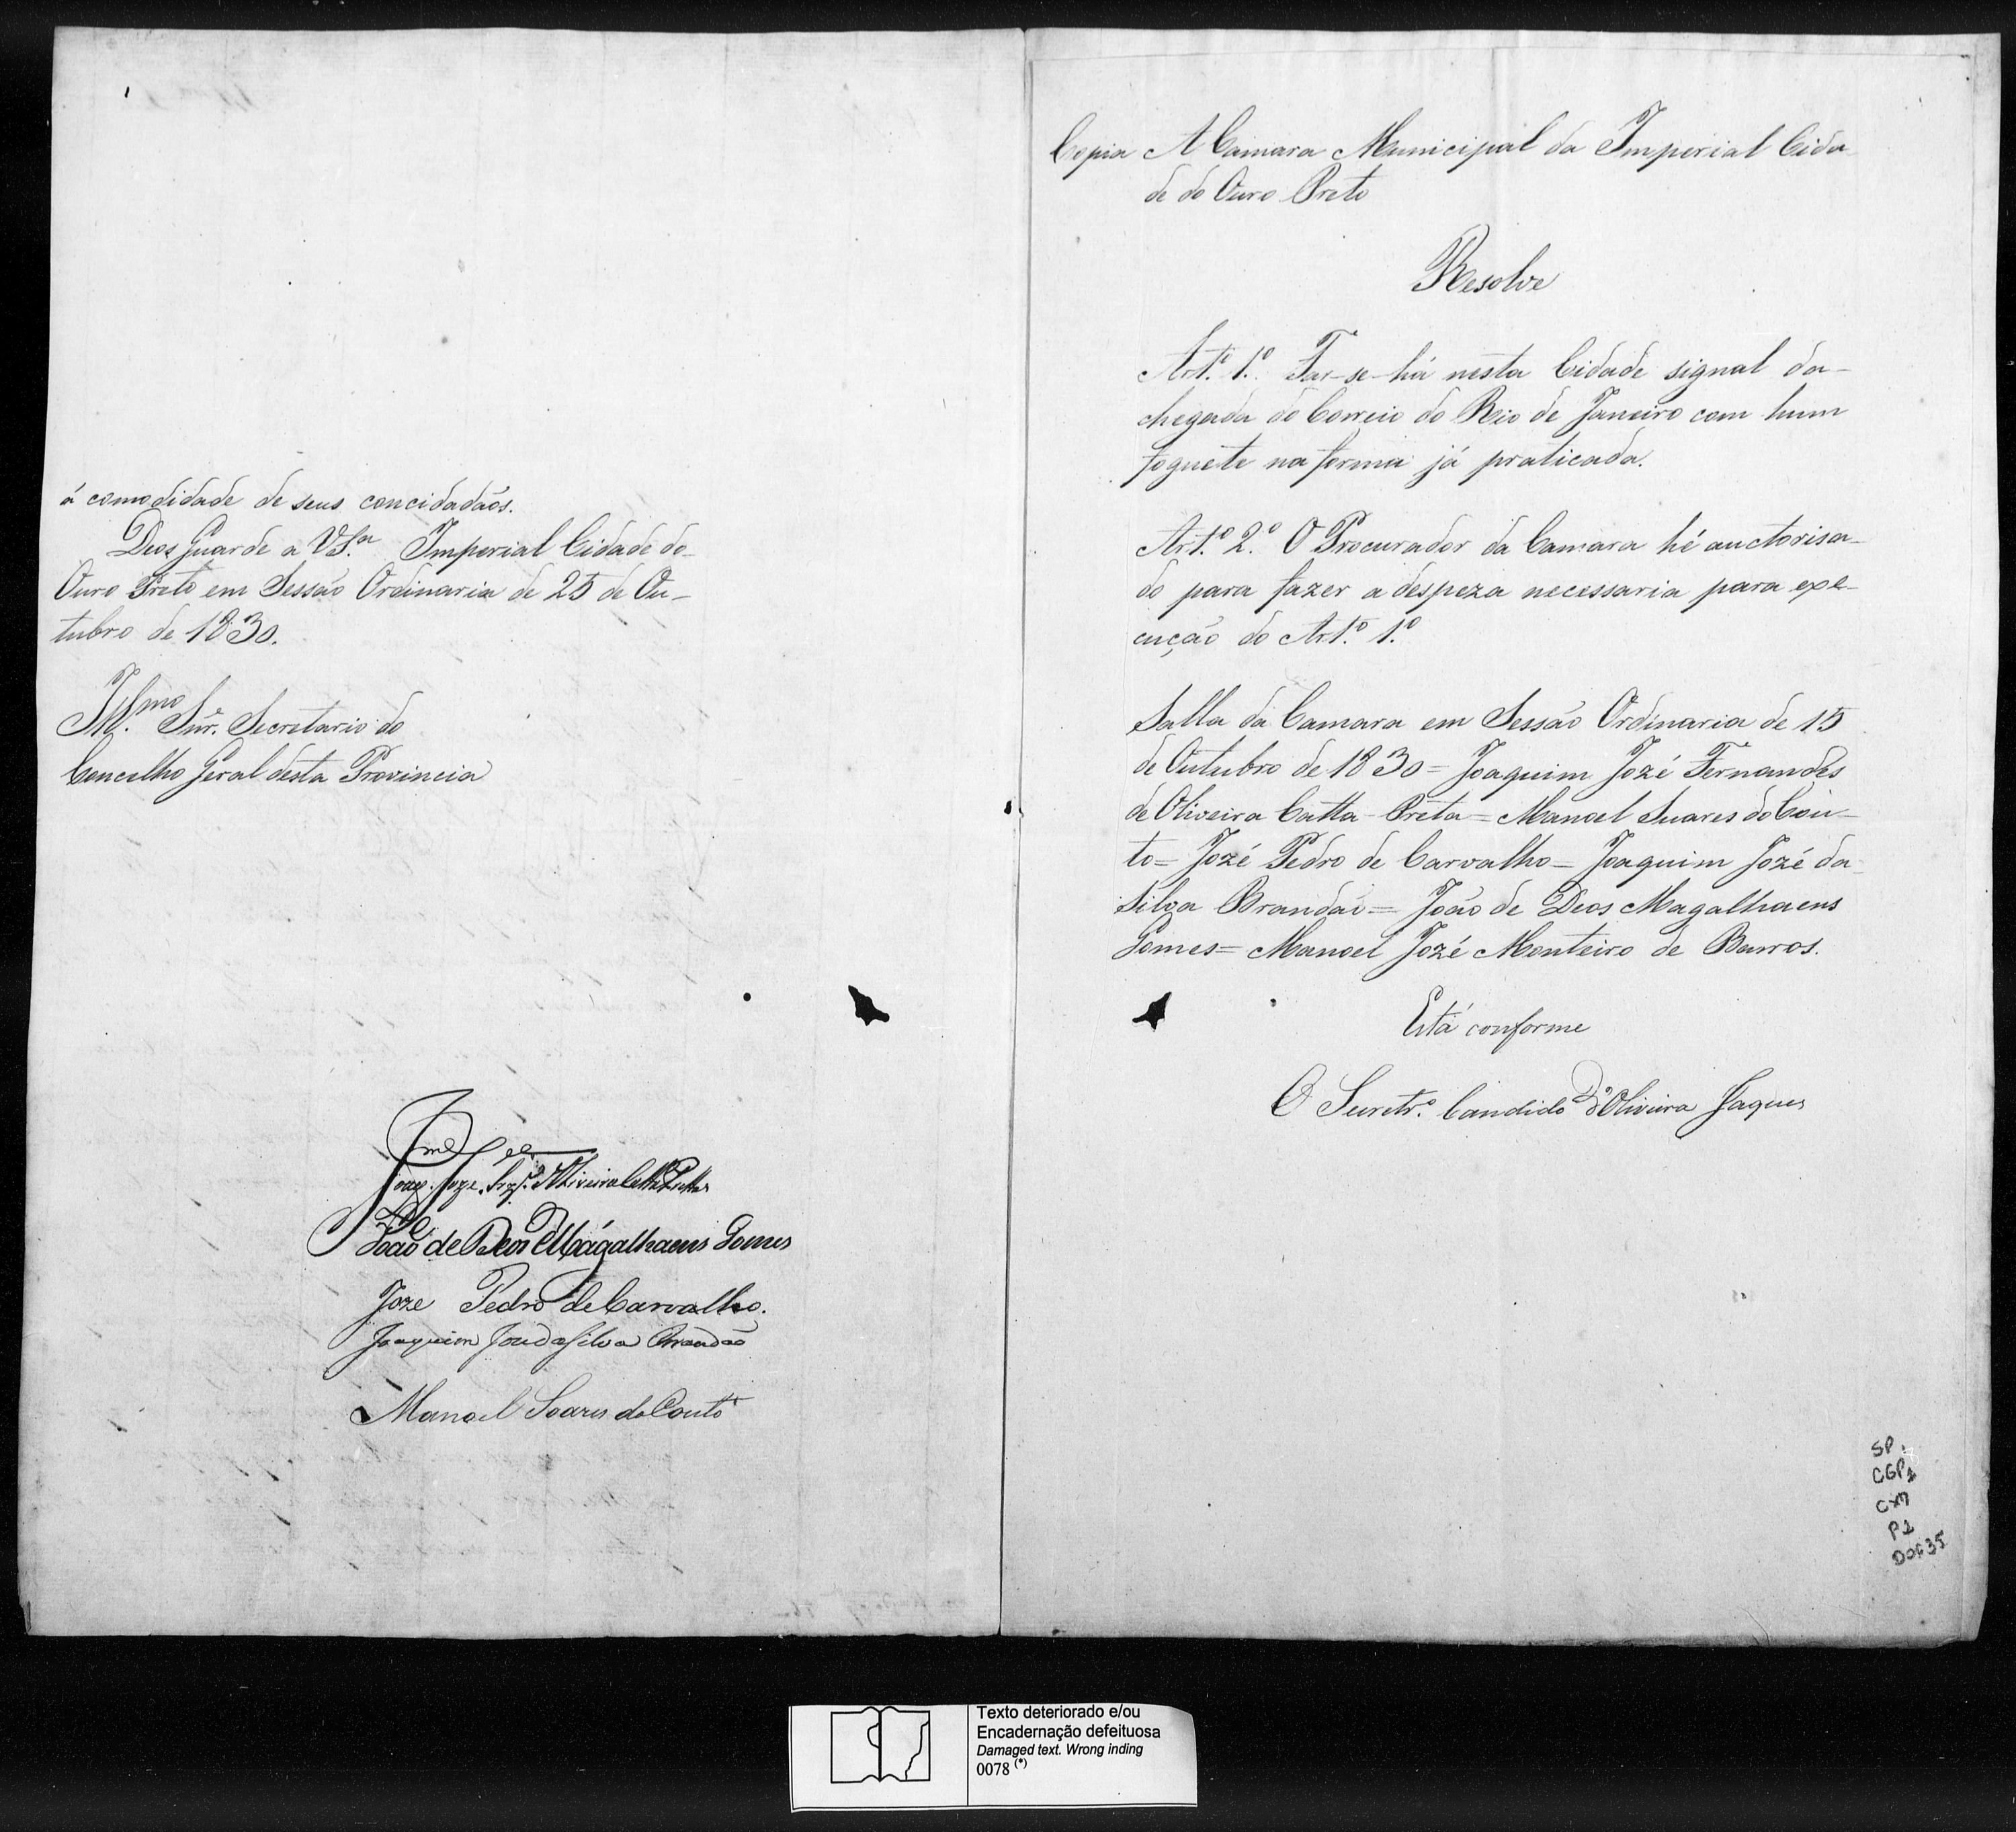 á comodidade de seus concidadaõs.
Deos Guarde a VS.ª Imperial Cidade do
Ouro Preto em Sessão Ordinaria de 25 de Ou-
tubro de 1830.
Ill.mo Snr. Secretario do
Concelho Geral desta Provincia
João de Deos Magalhaens Gomes
Joze Pedro de Carvalho.
Joaquim José da Silva Brandão
Manoel Soares do Couto
Copia A Camara Municipal da Imperial Cida
de do Ouro Preto
Resolve
Art.º 1.º Far-se-há nesta Cidade signal da-
chegada do Correio do Rio de Janeiro com hum
foguete na forma já praticada.
Art.º 2.º O Procurador da Camara hé auctorisa-
do para fazer a despeza necessaria para exe-
cução do Art.º 1.º
Salla da Camara em Sessão Ordinaria de 15
de Outubro de 1830 = Joaquim Jozé Fernandes
de Oliveira Catta Preta = Manoel Suares do Cou-
to = Jozé Pedro de Carvalho = Joaquim Jozé da
Silva Brandaõ = João de Deos Magalhaens
Gomes = Manoel Jozé Monteiro de Barros.
Está conforme
O Secretr.º Candido d'Oliveira Jaques
SP
CGP1
CX7
P2
DOC35
Texto deteriorado e/ou
Encadernação defeituosa
Damaged text. Wrong inding
0078 (*)